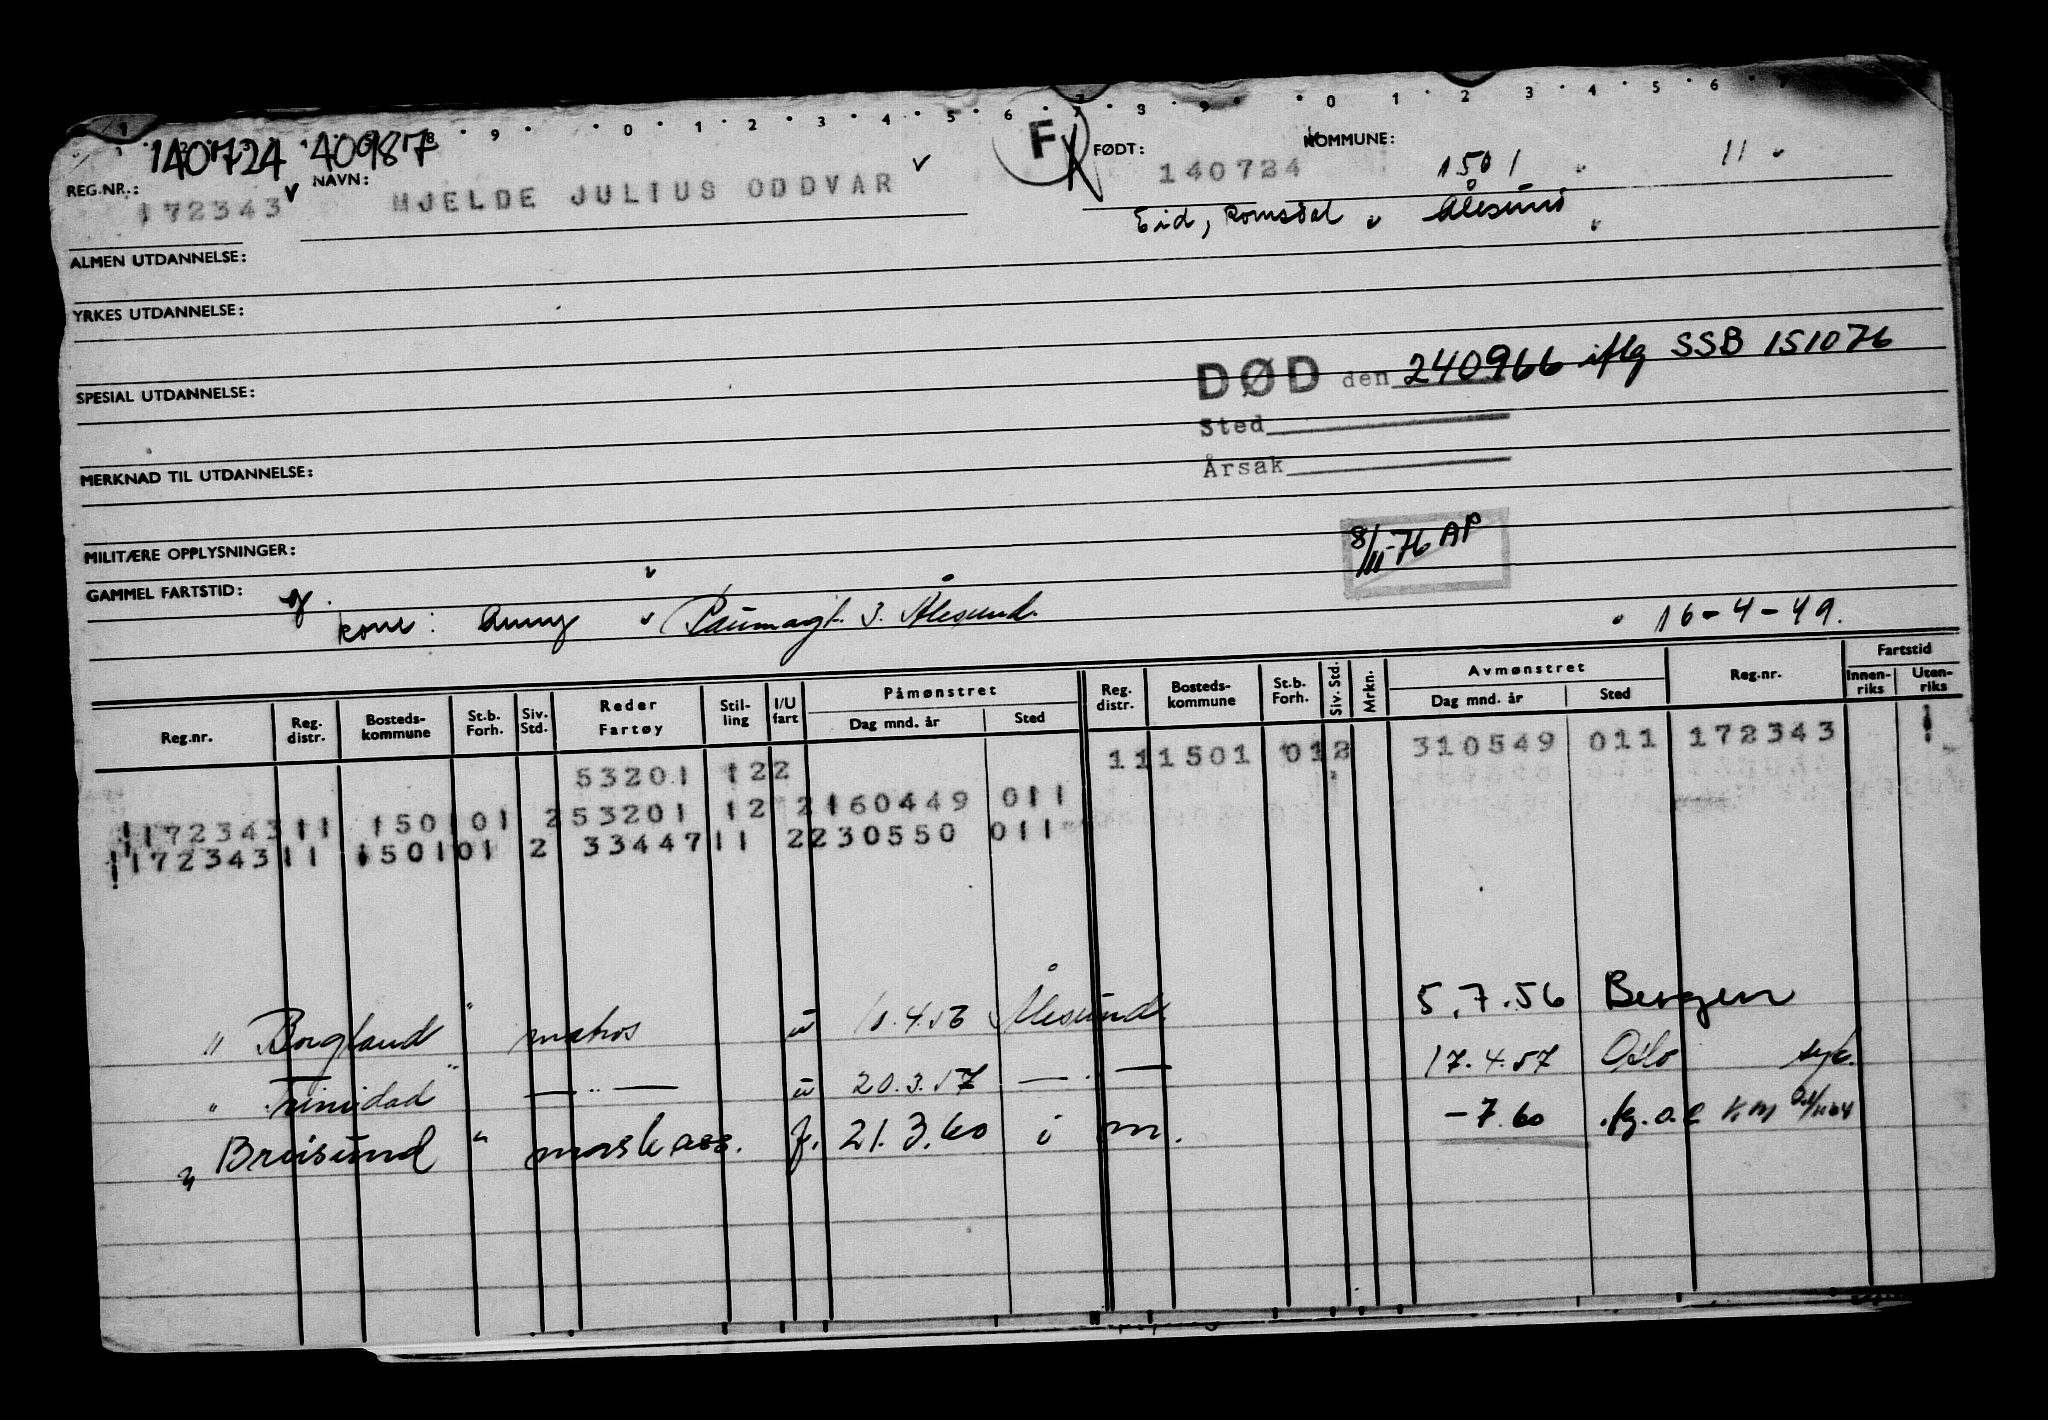 1 . . . 9 . . 0 . 1 . 2 . 3 . 4 . 5 . 6 . 7 . 8 . 9 . . 0 1 . 2 3 . 4 . 5 . 6 . 7
140724 40987
F
REG.NR.: 172343 NAVN: MJELDE JULIUS ODDVAR FØDT: 140724 KOMMUNE: 1501 11
Eid, Romsdal Ålesund
ALMEN UTDANNELSE:
YRKES UTDANNELSE:
DØD den 240966 iflg SSB 151076
SPESIAL UTDANNELSE:
Sted
Årsak
MERKNAD TIL UTDANNELSE:
8/11-76 AP
MILITÆRE OPPLYSNINGER:
GAMMEL FARTSTID:
kone: Anny 3. Ålesund. 16-4-49.
Reg.nr. Reg. distr. Bosteds- kommune St.b. Forh. Siv. Std. Reder Fartøy Stil- ling I/U fart Påmønstret Dag mnd. år Sted Reg. distr. Bosteds- kommune St.b. Forh. Siv. Std. Mrkn. Avmønstret Dag mnd. år Sted Reg.nr. Fartstid Innen- riks Uten- riks
53201 122 111501 012 310549 011 172343
117234311 150101 253201 12 2160449 011
117234311 150101 2 3344711 2230550 011
"Borgland" matros u 10.4.56 Ålesund 5.7.56 Bergen
"Trinidad" — " — u 20.3.57 — " — 17.4.57 Oslo syk.
"Breisund" maskass. f. 21.3.60 i m. -7.60